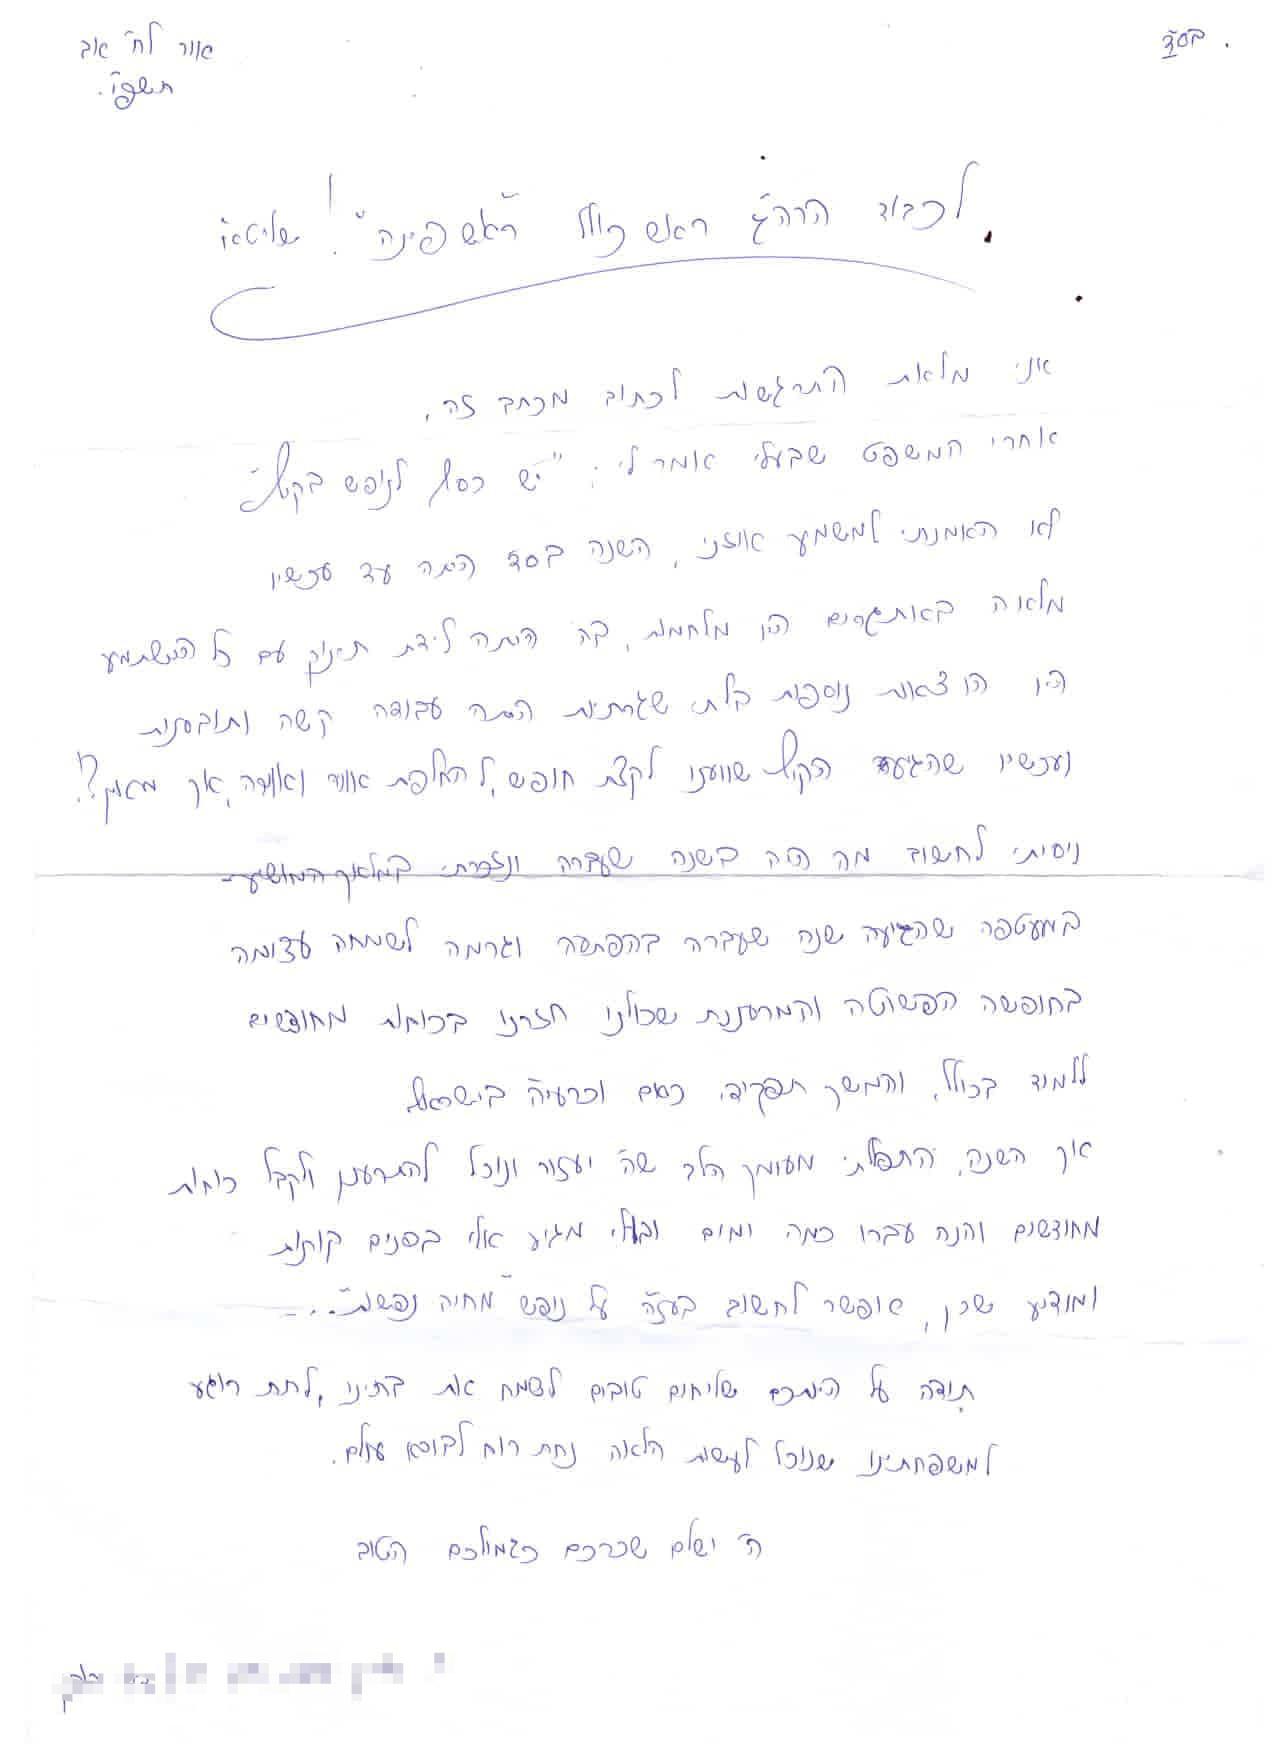 בסד
אור לח' אב
תשפ"ו.
לכבוד הרה"ג ראש כולל "ראש פינה"! שליטא!
אני מלאת התרגשות לכתוב מכתב זה,
אחרי המשפט שבעלי אמר לי: "יש כסף לנופש בקיץ"
לא האמנתי למשמע אוזני, השנה בסד היתה עד עכשיו
מלאה באתגרים הן מלחמות, בה היתה לידת תינוק עם כל המשתמע
הן הוצאות נוספות בלתי שגרתיות היתה עבודה קשה ותובענית
ועכשיו שהגיע הקיץ שוועתי לקצת חופש, להחלפת אויר ואווירה, אך מאין?!
ניסיתי לחשוב מה היה בשנה שעברה ונזכרתי במלאך המושיע-
במעטפה שהגיעה שנה שעברה בהפתעה וגרמה לשמחה עצומה
בחופשה הפשוטה והמרעננת שכולנו חזרנו בכוחות מחודשים
ללמוד בכולל, והמשך תפקידי כאם וכרעיה בישראל.
אך השנה, התפללתי מעומק הלב שה' יעזור ונוכל להתרענן ולקבל כוחות
מחודשים והנה עברו כמה ימים ובעלי מגיע אלי בפנים קורנות
ומודיע שכן, אפשר לחשוב בעז"ה על נופש "מחיה נפשות"...
תודה על היותכם שליחים טובים לשמח את בתינו, לתת רוגע
למשפחתינו שנוכל לעשות הלאה נחת רוח לבורא עולם.
ה' ישלם שכרכם כגמולכם הטוב